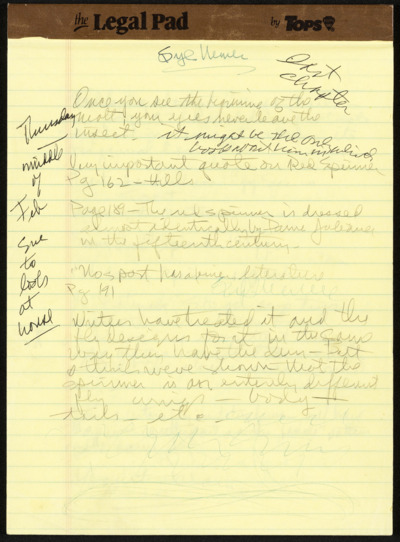 the Legal Pad by TOPS
last
chapter
Once you see the beginning of the
moth, your eyes never leave the
insect. it might be the one
Thursday
middle
of
Feb
Sue
to
at
house
important quote on Red Spinner
Pg 162 – Hills
Page 189 – The red spinner is dressed
almost identically by Dame Juliana
in the fifteenth century.
"No sport has a finer literature
Pg 191
Writers have treated it and the
fly designs for it in the same
way they have the dun – But
others we've shown that the
spinner is an entirely different
fly wings – body –
tails – etc.